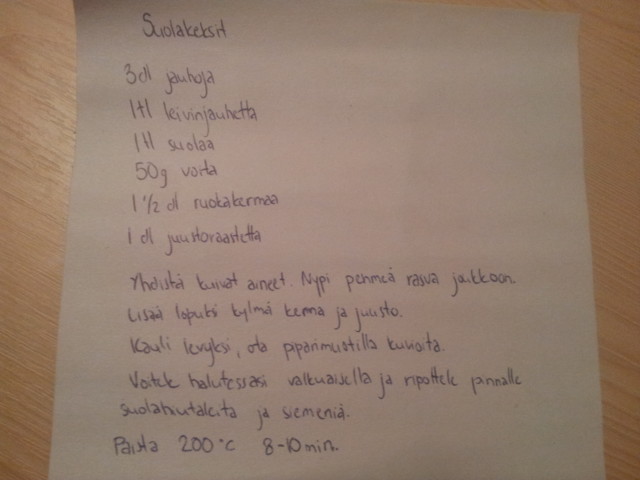 Suolakeksit
3 dl jauhoja
1 tl leivinjauhetta
1 tl suolaa
50g voita
1 1/2 dl ruokakermaa
1 dl juustoraastetta
Yhdistä kuivat aineet. Nypi pehmeä rasva joukkoon.
Lisää lopuksi kylmä kerma ja juusto.
Kauli levyksi, ota piparimuotilla kuvioita.
Voitele halutessasi valkuaisella ja ripottele pinnalle
suolahiutaleita ja siemeniä.
Paista 200°c 8-10 min.